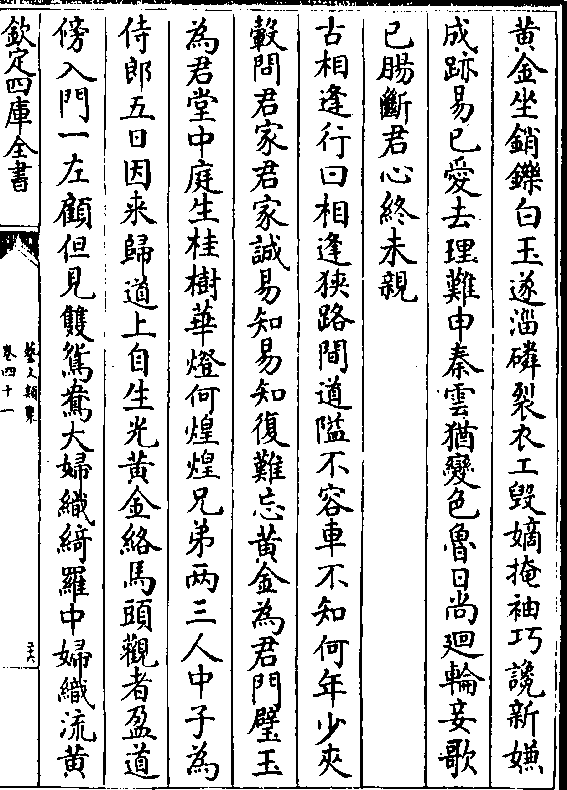 黄金坐銷鑠白玉遂淄磷裂衣工毁嫡掩袖巧讒新嫌
成跡易已愛去理難申秦雲猶變色魯日尚廻輪妾歌
已腸斷君心終未親
古相逢行曰相逢狹路間道隘不容車不知何年少夾
轂問君家君家誠易知易知復難忘黄金為君門璧玉
為君堂中庭生桂樹華燈何煌煌兄弟兩三人中子為
侍郎五日因来歸道上自生光黄金絡馬頭觀者盈道
傍入門一左顧但見雙鴛鴦大婦織綺羅中婦織流黄
欽定四庫全書
藝文類聚
卷四十一
三六